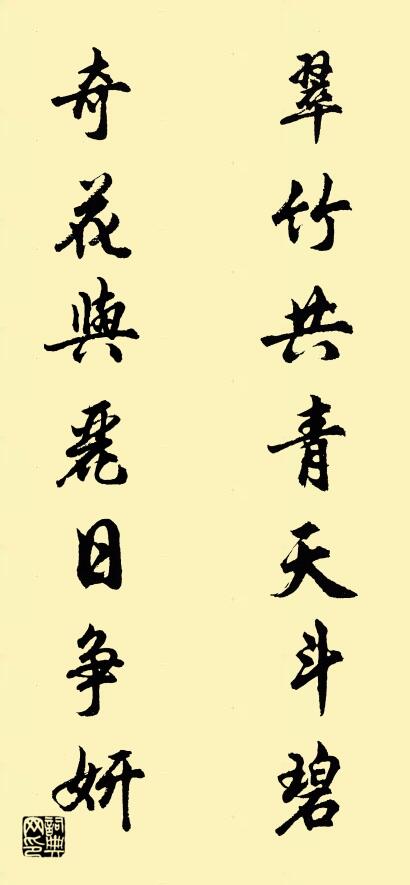 翠竹共青天斗碧
奇花與麗日争妍
詞典网印